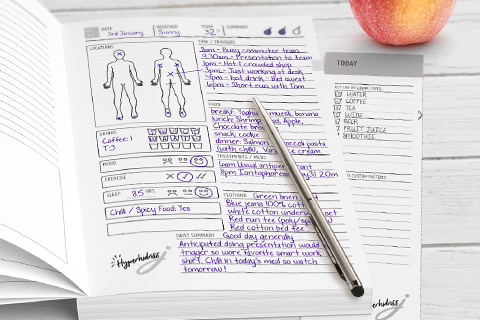 DATE
3rd January
WEATHER
Sunny
TEMP
32°
SUMMARY
LOCATIONS
TIME / TRIGGERS
8am - Busy commuter train
9.30am - Presentation to team
1pm - Hot & crowded shop
3pm - Just working at desk
5pm - hot drink - Bad sweat
6pm - Short run with Tom
FOOD
breakf: Yoghurt, muesli, banana
lunch: Shrimp Apple,
Chocolate
snack: cookie
dinner: Salmon, broccoli pasta
(with chilli), cream
DRINKS
Coffee: 1
T:3
MOOD
EXERCISE
SLEEP
8.5 HRS
Chilli / Spicy Food: Yes
TREATMENTS / MEDS
6am Usual antiperspirant
8pm Iontophoresis 20m
CLOTHING
Green linen
Blue jeans 100% cotton
white cotton underwear
Red run tee (poly/
Red cotton bed tee
DAILY SUMMARY
Good day generally
Anticipated doing presentation would
trigger so wore favorite smart work
shirt. Chilli in today's meal so watch
tomorrow!
Hyperhidrosis
TODAY
WATER
COFFEE
TEA
WINE
BEER
FRUIT JUICE
SMOOTHIE
FACTORS